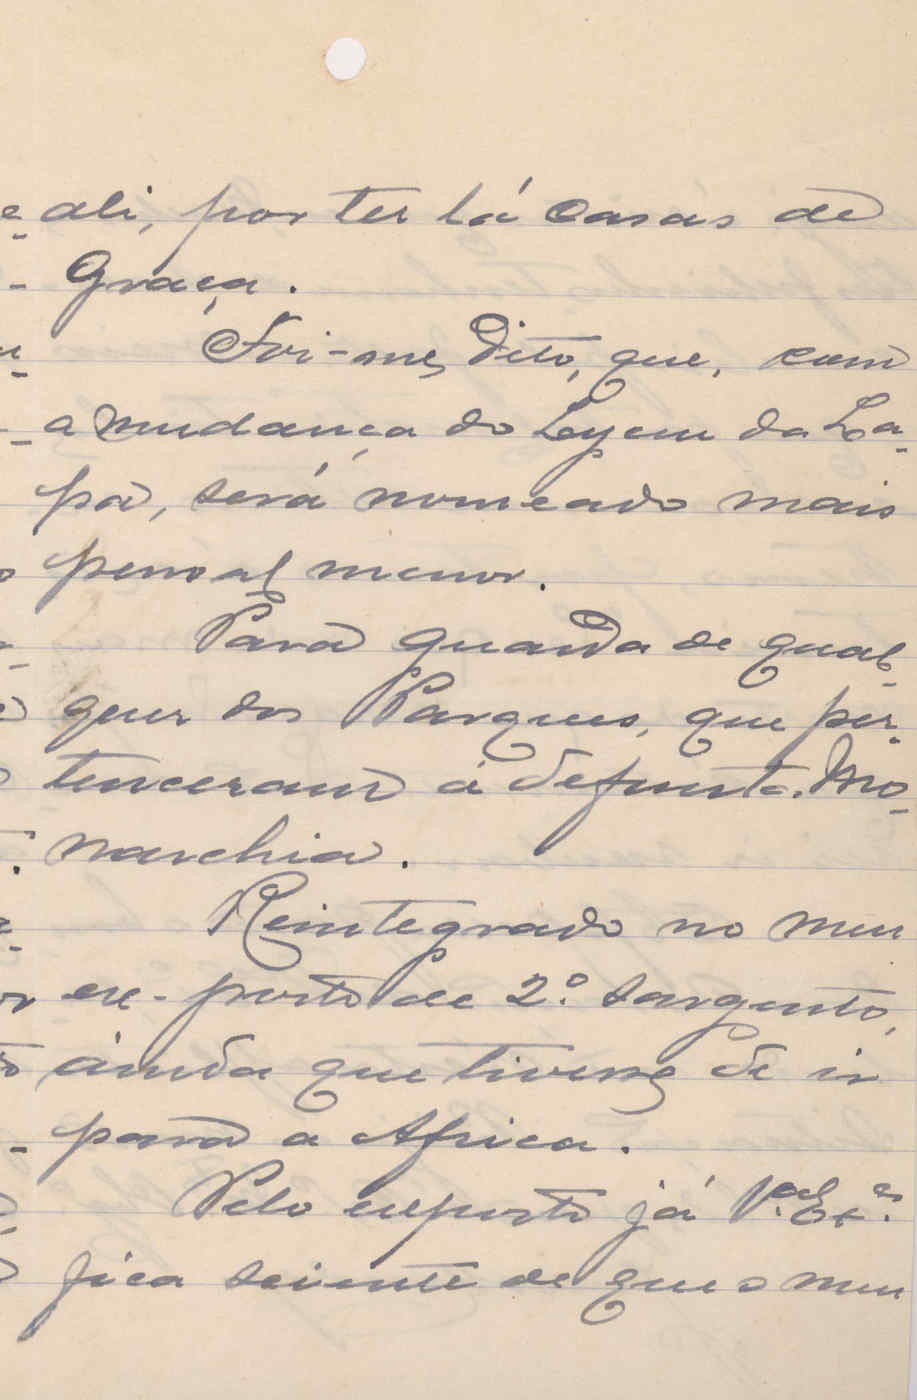 ali, por ter lá casas de
Graça.
Foi-me, dito, que, com
a mudança do Lyceu da La-
pa, será nomeado mais
pessoal menor.
Para guarda de qual-
quer dos Parques, que per-
tenceram á defunta Mo-
narchia.
Reintegrado no meu
ex-posto de 2º. sargento,
ainda que tivesse de ir
para a Africa.
Pelo exposto já V.ª Ex.ª
fica sciente de que o meu